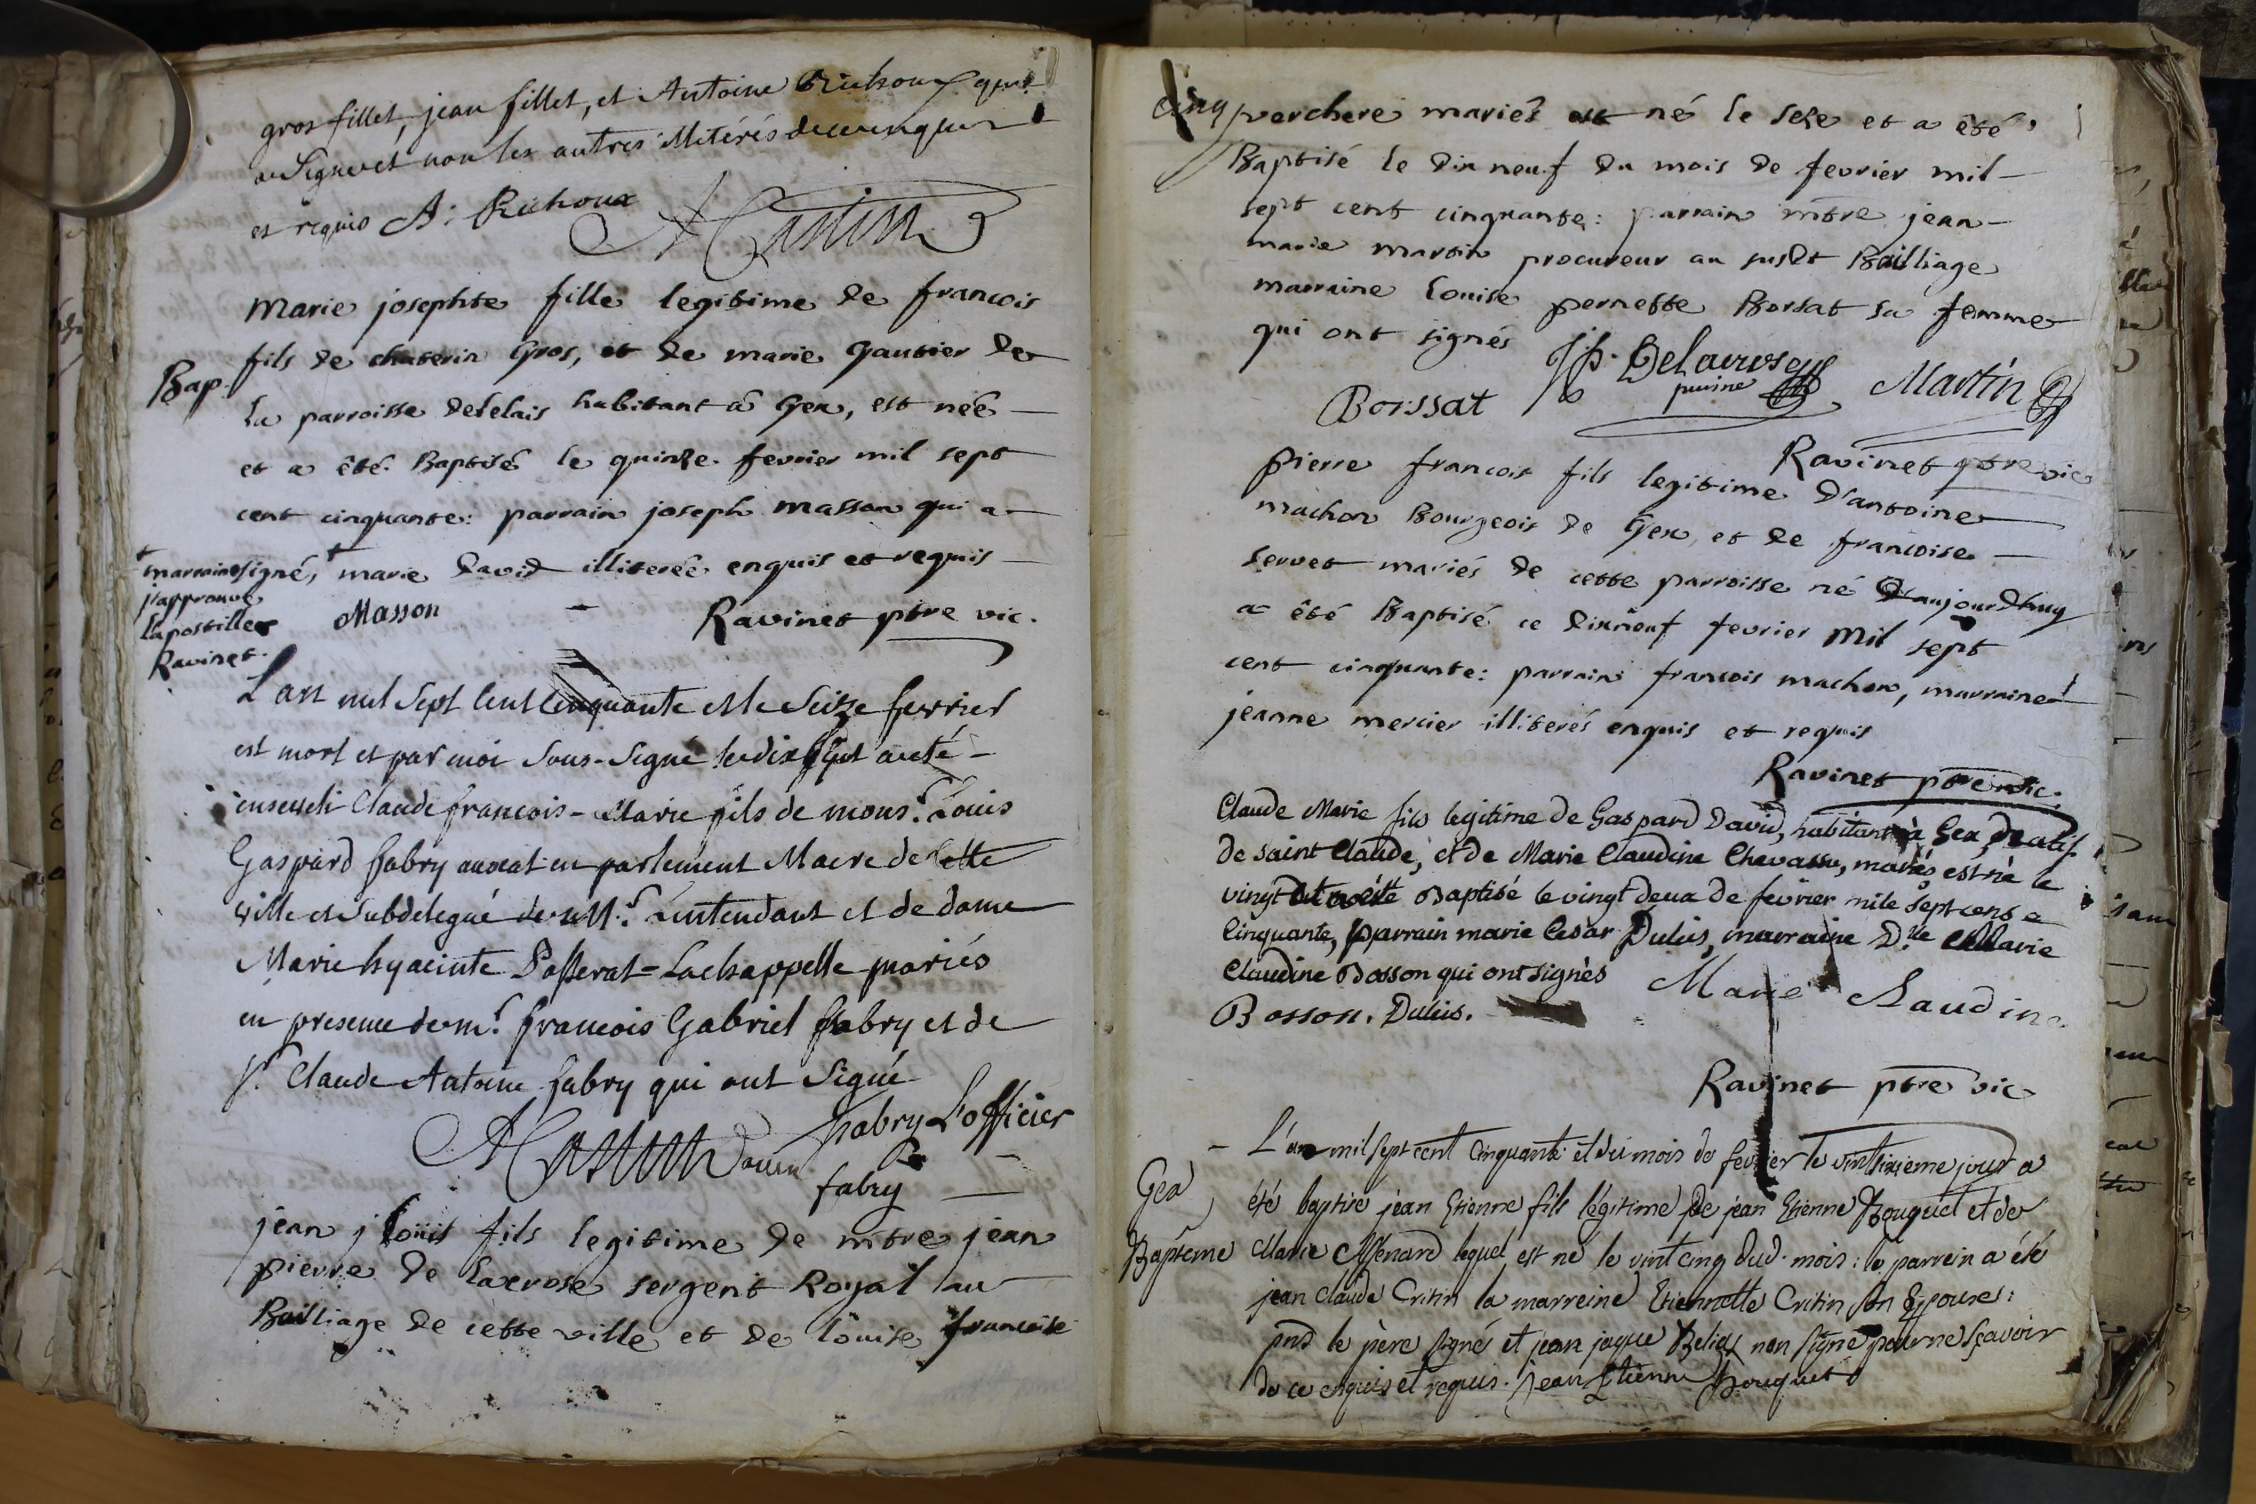 gros fillet, jean fillet, et Antoine Richoux qui
a Signé et non les autres illitérés de ce enquis
et requis A: Richoux
Castin
Marie josephte fille legitime de francois
fils de chaterin Gros, et de marie Gautier de
Bap.
la parroisse delelais habitant á Gex, est née
et a êté Baptisée le quinze fevrier mil sept
cent cinquante: parrain joseph masson qui a
signé, + marie David illiterée enquis et requis
+ marraine
j'approuve
lapostille
Ravinet.
Masson
Ravinet ptre vic.
L'an mil Sept Cent Cinquante et le Seize fevrier
est mort et par moi Sous-Signé le dix sept a eté
enseveli Claude francois-Marie fils de mons.r Louis
Gaspard fabry avocat en parlement Maire de Cette
ville et Subdelegué de M.r L'intendant et de dame
Marie hyacinte Passerat-Lachappelle mariés
en presence de m.r francois Gabriel fabry et de
s.r Claude Antoine fabry qui ont Signé
fabry L'officier
Castin Doien
fabry
jean j louis fils legitime de mtre jean
pierre de Lacrose sergent Royal au
Bailliage de cette ville et de Loüise francoise
cinq
verchere mariés est né le seze et a êté
Baptisé le dix neuf du mois de fevrier mil
sept cent cinquante: parrain mtre jean
marie martin procureur au susdt Bailliage
marraine Louise pernette Borsat sa femme
qui ont signés
Borssat
Martin
Ravinet ptre vic
pierre francois fils legitime D'antoine
machon Bourgeois de Gex, et de francoise
servet mariés de cette parroisse né D'aujourdhuy
a êté Baptisé ce dixneuf fevrier mil sept
cent cinquante: parrain francois machon, marraine
jeanne mercier illiterés enquis et requis
Ravinet ptre vic.
Claude Marie fils legitime de Gaspard David, habitant à Gex, natif
de saint Claude, et de Marie Claudine Chevassu, mariés est né le
vingt et a été Baptisé le vingt deux de fevrier mile sept cens
Cinquante, parrain marie Cesar Duluis, marraine D.lle Marie
Claudine Bosson qui ont signès Marie Claudine
Bosson. Duluis.
Ravinet ptre vic
L'an mil sept cent Cinquante et du mois de fevrier le vintsixieme jour a
Gex
Baptême
été baptisé jean Etienne fils légitime de jean Etienne Bouquet et de
Marie Menard lequel est né le vint cinq dud. mois: le parrein a été
jean Claude Critin la marreine Etiennette Critin son Epouse:
pnts le père signés et jean jaque non signé pour ne sçavoir
de ce enquis et requis. jean Etienne Bouquet